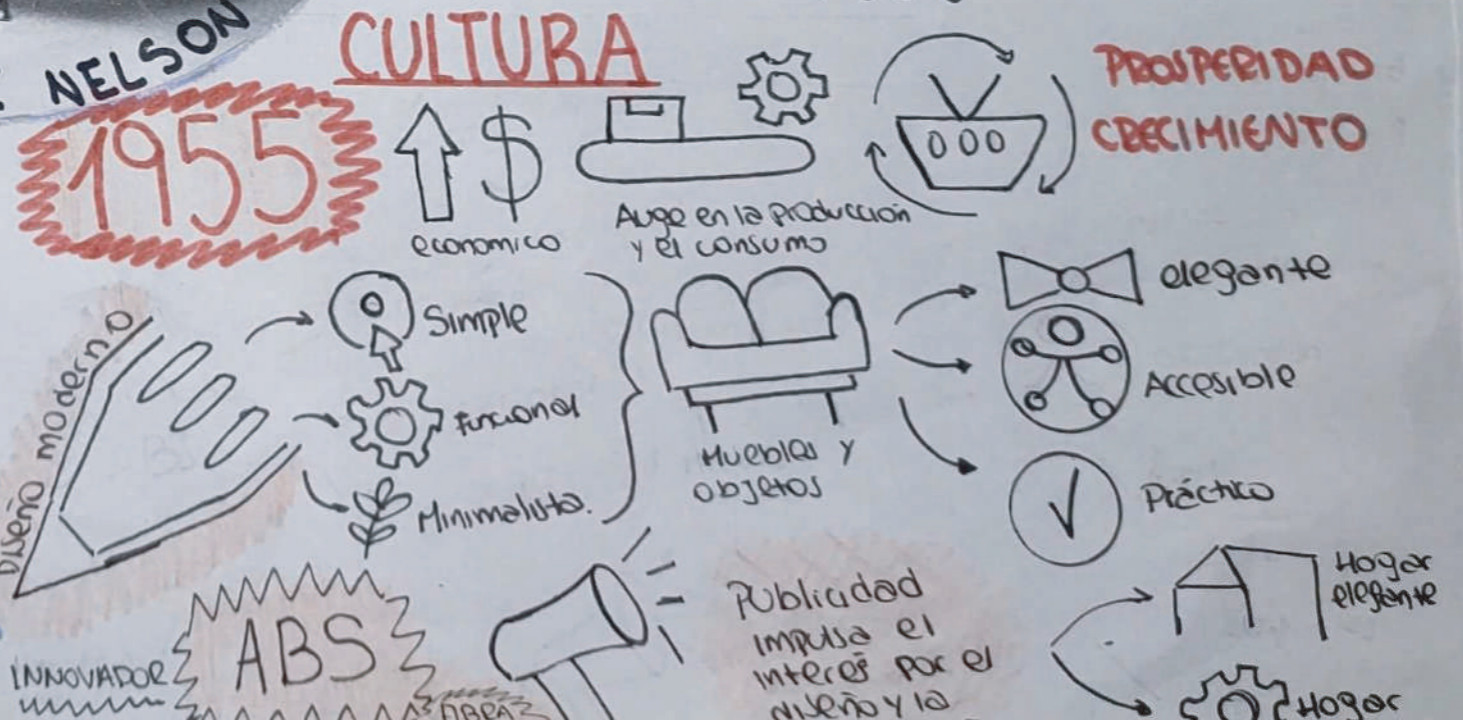 NELSON
CULTURA
1955
$
economico
Auge en la producción
y el consumo
PROSPERIDAD
CRECIMIENTO
Diseño moderno
Simple
Funcional
Minimalista.
Muebles y
objetos
elegante
Accesible
Práctico
INNOVADOR
ABS
Publicidad
impulsa el
interés por el
diseño y la
Hogar
elegante
Hogar